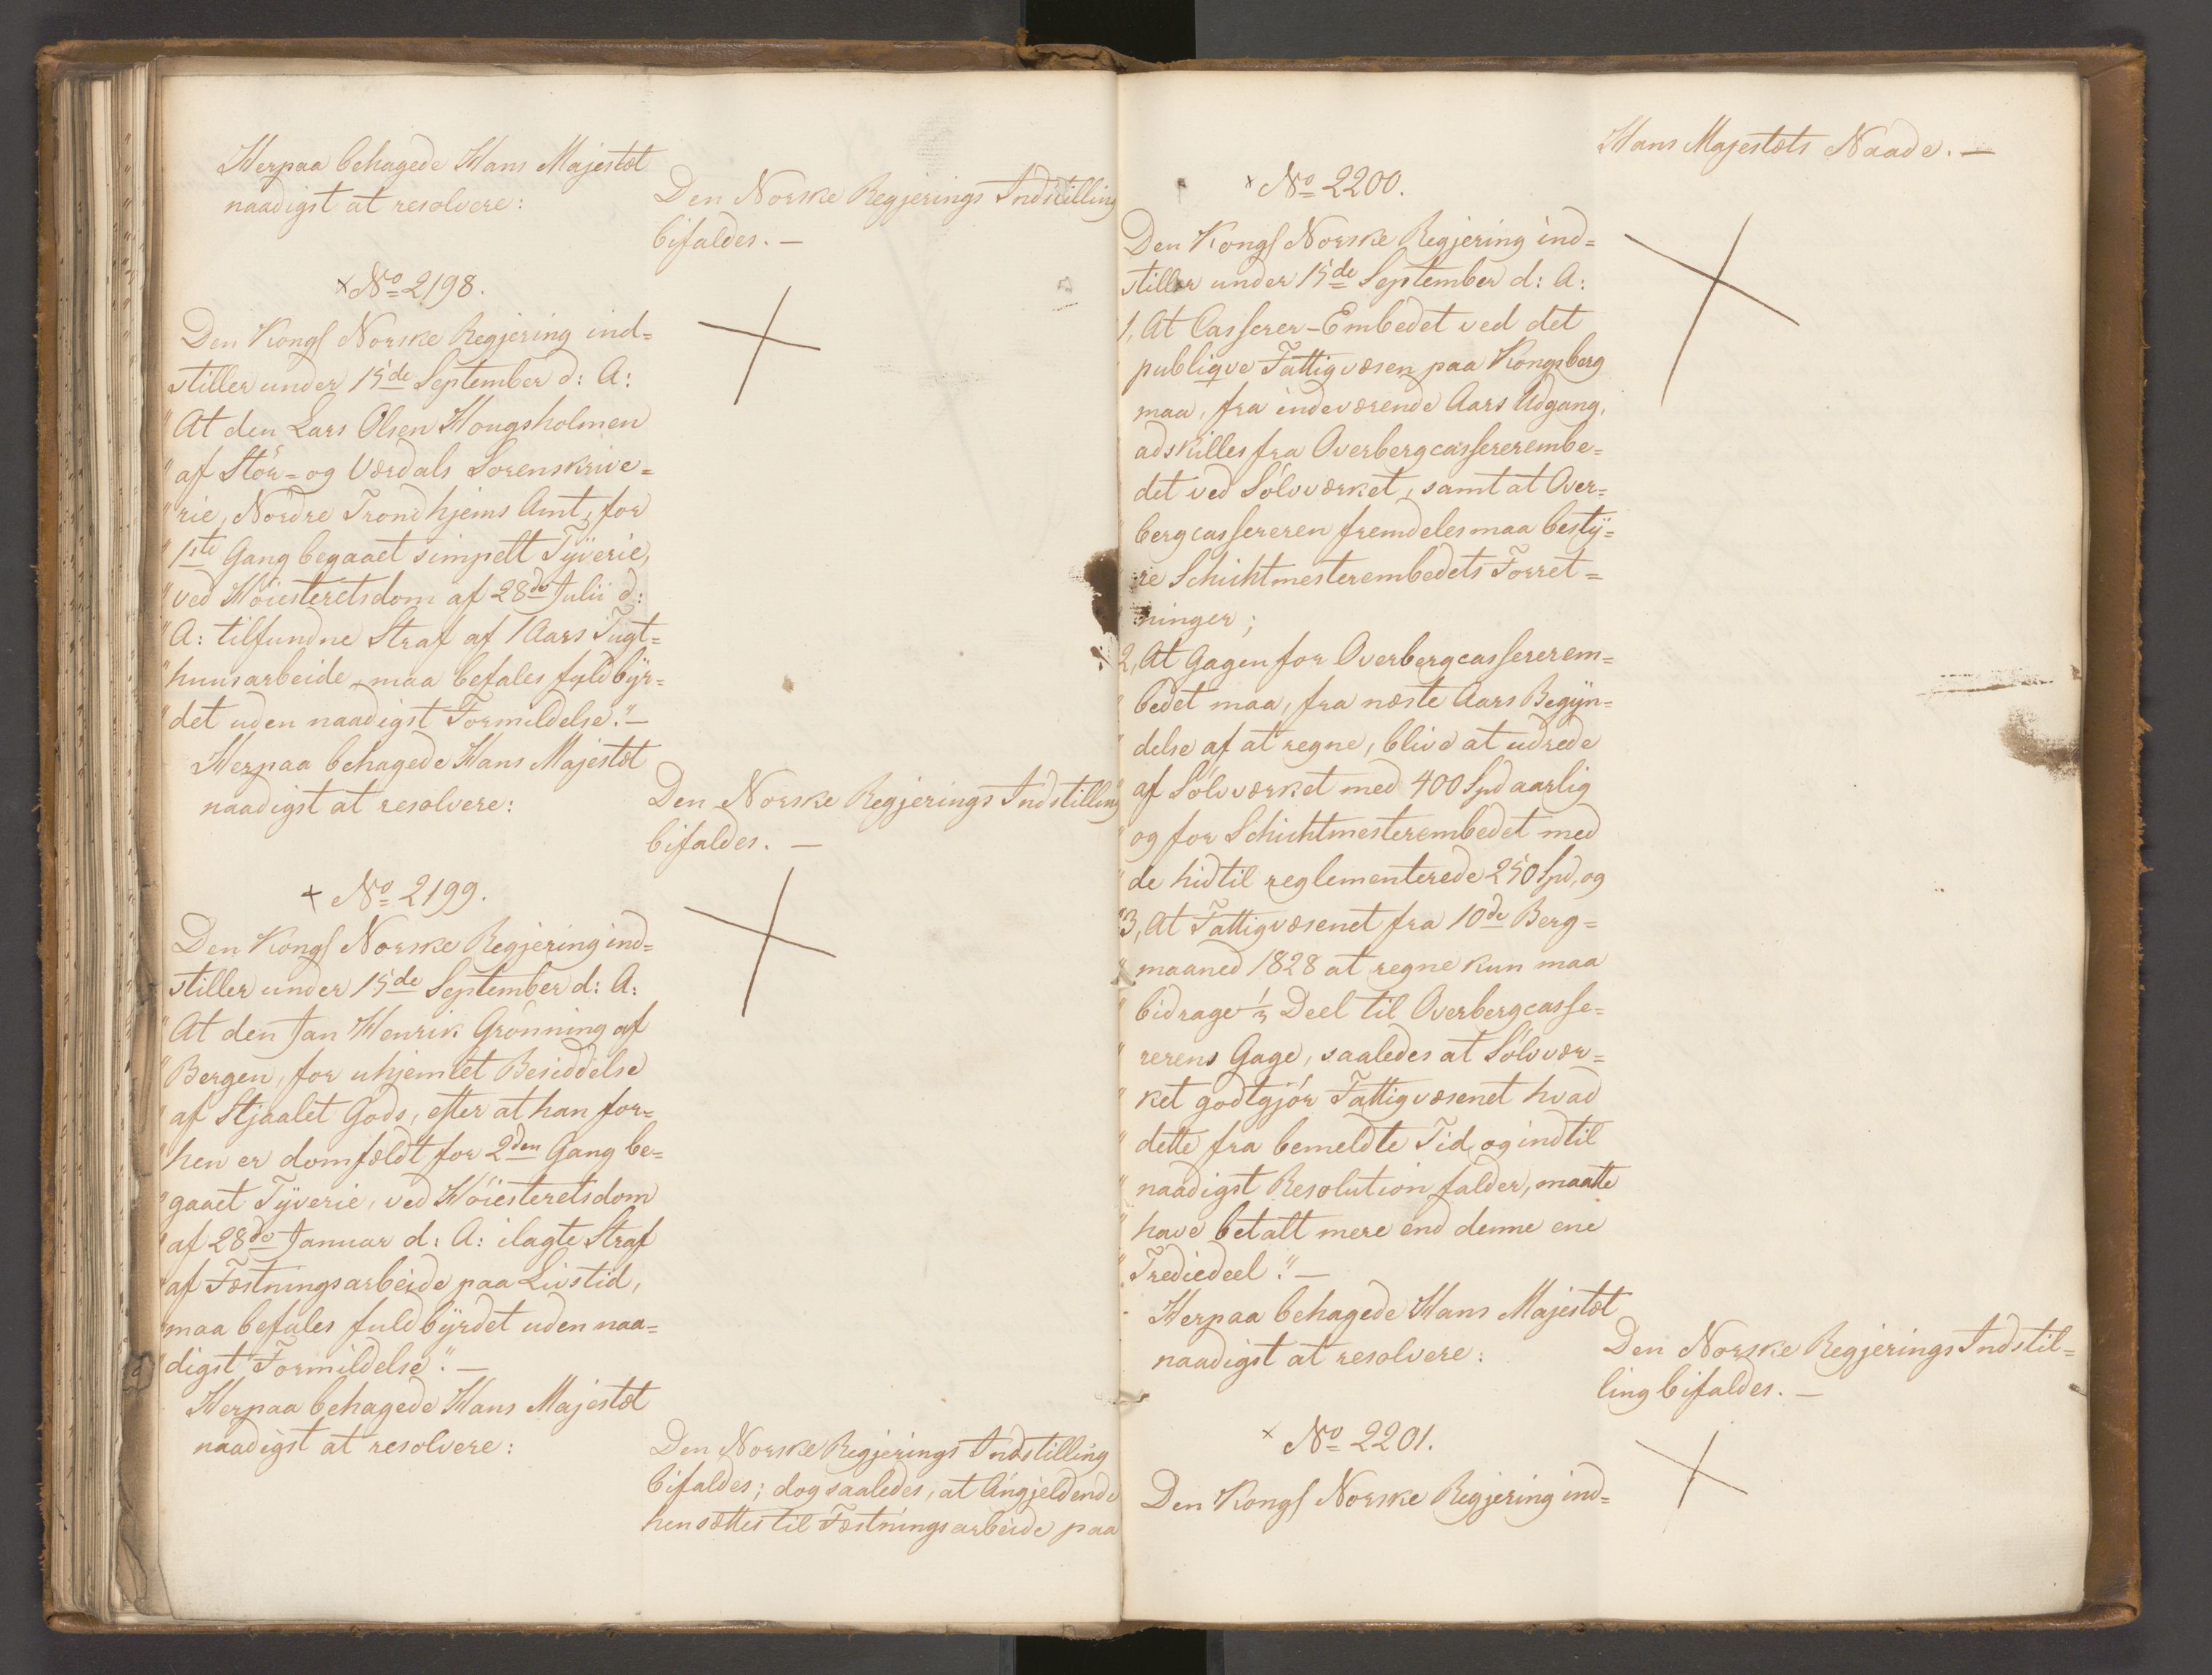 Herpaa behagede Hans Majestæt
naadigst at resolvere:
Den Norske Regjerings Indstilling
bifaldes. —
× No 2198.
Den Kongs Norske Regjering ind=
stiller under 15de September d: A:
"At den Lars Olsen Hougsholmen
"af Stör= og Værdals Sorenskrive=
"rie, Nordre Trondhjems Amt, for
"1ste Gang begaaet simpelt Tÿverie,
"ved Höiesteretsdom af 28de Julii d:
"A: tilfundne Straf af 1 Aars Tugt=
"huusarbeide, maa befales fuldbÿr=
"det uden naadigst Formildelse." —
Herpaa behagede Hans Majestæt
naadigst at resolvere:
Den Norske Regjerings Indstilling
bifaldes. —
× No 2199.
Den Kongs Norske Regjering ind=
stiller under 15de September d: A:
"At den Jan Henrik Grönning af
"Bergen, for uhjemlet Besiddelse
"af Stjaalet Gods, efter at han for=
"hen er domfældt for 2den Gang be=
"gaaet Tÿverie, ved Höiesteretsdom
"af 28de Januar d: A: ilagte Straf
"af Fæstningsarbeide paa Livstid,
"maa befales fuldbÿrdet uden naa=
"digst Formildelse". —
Herpaa behagede Hans Majestæt
naadigst at resolvere:
Den Norske Regjerings Indstilling
bifaldes; dog saaledes, at Angjeldende
hensættes til Fæstningsarbeide paa
Hans Majestæts Naade. —
× No 2200.
Den Kongs Norske Regjering ind=
stiller under 15de September d: A:
1, At Casserer-Embedet ved det
publiqve Fattigvæsen paa Kongsberg
maa, fra indeværende Aars Udgang,
adskilles fra Overbergcassererembe=
det ved Sölvværket, samt at Over=
bergcassereren fremdeles maa bestÿ=
re Schichtmesterembedets Forret=
ninger;
2, At Gagen for Overbergcassererem=
"bedet maa, fra næste Aars Begÿn=
"delse af at regne, blive at udrede
"af Sölvværket med 400 Spd aarlig
"og for Schichtmesterembedet med
"de hidtil reglementerede 250 Spd, og
"3, At Fattigvæsenet fra 10de Berg=
"maaned 1828 at regne kun maa
"bidrage 1/3 Deel til Overbergcasse=
"rerens Gage, saaledes at Sölvvær=
"ket godtgjör Fattigvæsenet hvad
"dette fra bemeldte Tid og indtil
"naadigst Resolution falder, maatte
"have betalt mere end denne ene
"Trediedeel." —
Herpaa behagede Hans Majestæt
naadigst at resolvere:
Den Norske Regjerings Indstil=
ling bifaldes. —
× No 2201.
Den Kongs Norske Regjering ind=